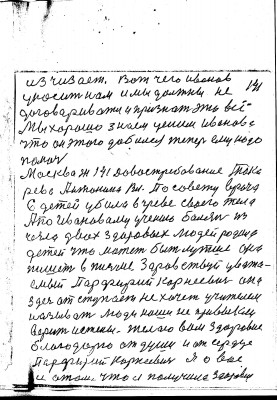 изчизает. Вот чего иванов
уносит нам и мы должны не 131
договариват и признат это всё-
Мы хорошо знаем ценим Иванова
что он этого добился тепер ему надо
помоч
Москва Ж 141 довостребование Тока
рева Антонина Ив. По совету врача
6 детей убила в чреве своего тела
А по Ивановаму учению
чела двах здоровых людей родила
детей что может быт лутше она
пишет в писме Здравствуй уважа-
емый Парфирий Корнеевич она
здес отступает не хочет учителем
называт люди наши не привыкли
верит истени. Желаю вам здоровие
благодарю от души и от сердце
Парфирий Корнеевич я о вас
и о том что я получила здоровие